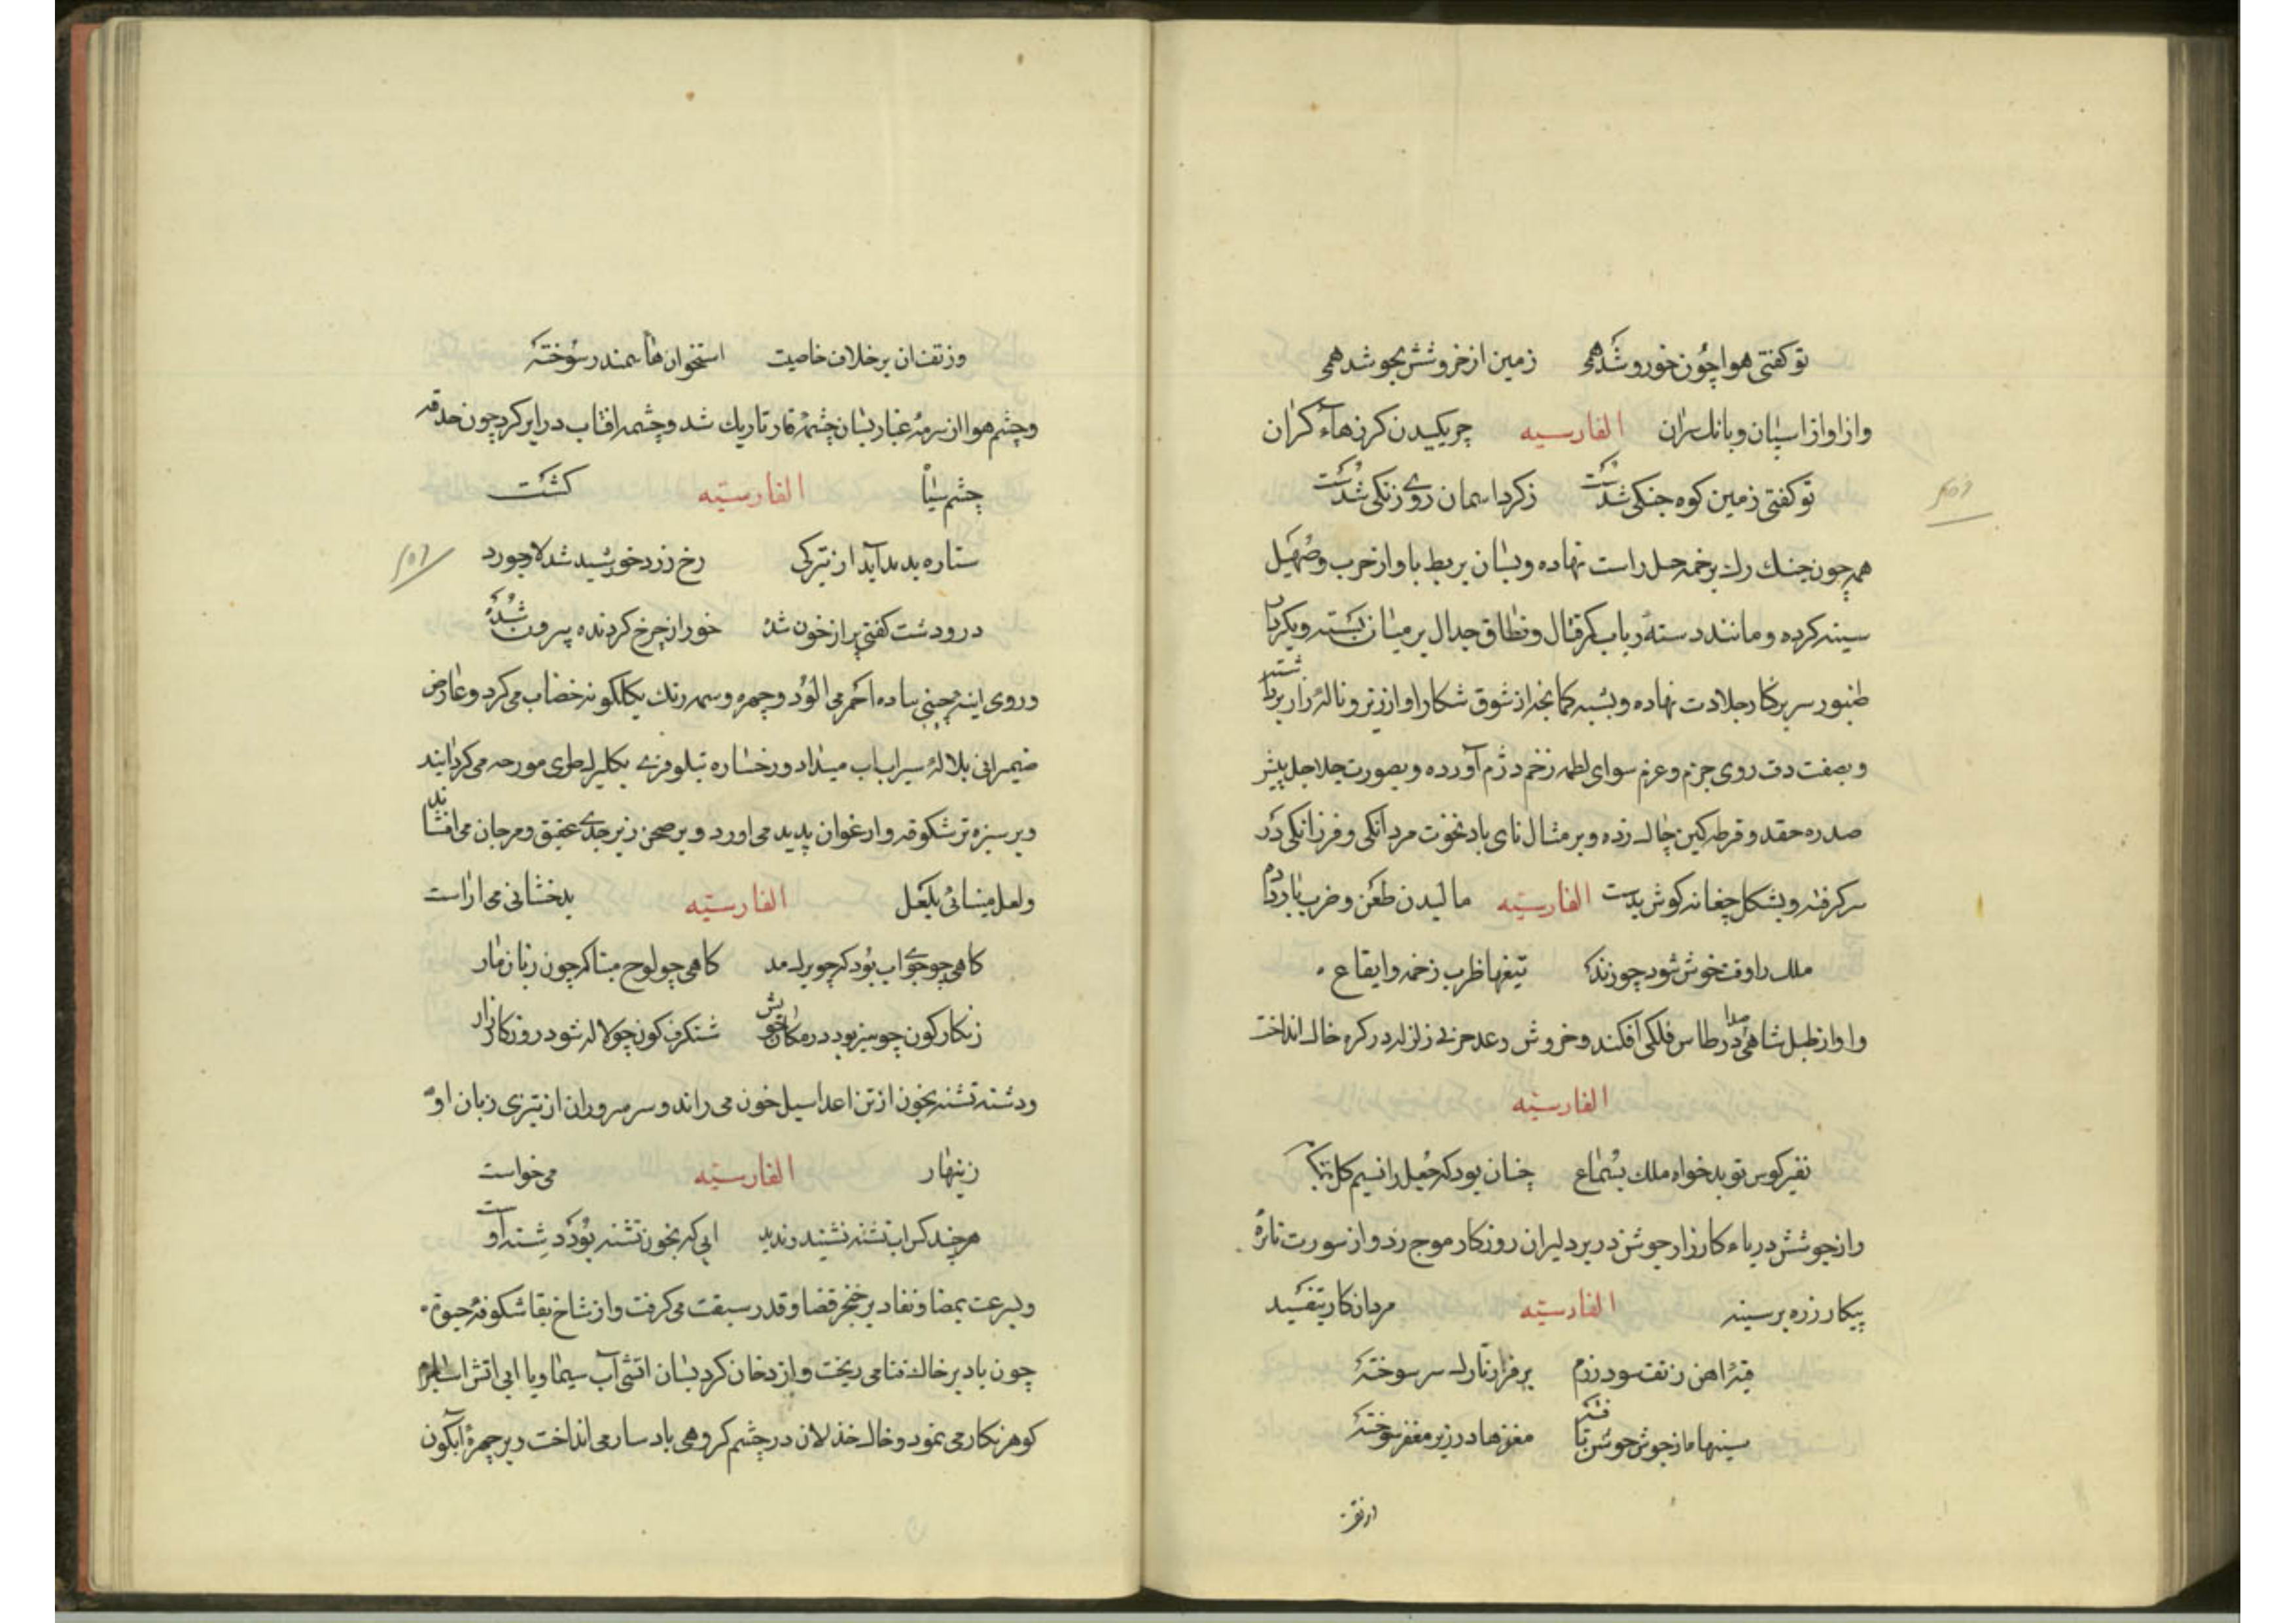 تو کفتی هوا چون خروشد همی زمین از خروشش بجوشد همی
واز اواز اسپان و بانك سران الفارسیه چریکیدن کرزهاء کران
تو کفتی زمین کوه جنکی شدست ز کرد اسمان روی زنکی شدست
همه چون چنك رك بر خمه حمل راست نهاده و بسان بربط باواز حرب و صهیل
سینه کرده و مانند دسته رباب کمر قتال و نطاق جدال بر میان بسته و بکردار
طنبور سر بر کار جلادت نهاده و بشبه کمانچه از شوق شکار اواز زیر و ناله زار برداشته
و بصفت دف روی جزم و عزم سوای لطمه زخم در رزم آورده و بصورت جلاجل پیش
صدره حقد و قرطه کین چاك زده و بر مثال نای باد نخوت مردانکی و فرزانکی در
سر کرفته و بشکل چغانه کوش بدست الفارسیه مالیدن طعن و ضرب باز داده
ملك را وقت خوش شود چو زند تیغها ظرب زخمه و ایقاع
و اواز طبل شاهی صدا در طاس فلکی افکند و خروش رعد حربی زلزله در کره خاك انداخت
الفارسیه
نفیر کوس تو بدخواه ملك بسماع چنان بود که جعل را نسیم کل بمشام
واز جوشش دریاء کارزار جوشن در بر دلیران روزکار موج زد و از سورت نائره
پیکار زره بر سینه الفارسیه مردان کار بتفسید
قبه اهن ز تف سود رزم بر فراز تارك سر سوخته
سینها ما از جوش جوشن تافته مغزها در زیر مغفر سوخته
وز تف
وز تف ان بر خلاف خاصیت استخوان هاء سمندر سوخته
و چشم هوا از سرمه غبار بسان چشمه قار تاریك شد و چشمه افتاب در ابر کرد چون حدقه
چشم سیاه الفارسیه کشت
ستاره بدید آید از تیرکی رخ زرد خورشید شد لاجورد
در و دشت کفتی پر از خون شده خور از چرخ کردنده بیرون شده
و روی اینه چینی ساده احمر می الود و چهره وسمه رنك بکلکونه خضاب می کرد و عارض
ضیمرانی بلاله سیراب اب میداد و رخساره نیلوفری بکلبرك طری مورد می کردانید
و بر سبزه تر شکوفه و ارغوان پدید می اورد و بر صحن زبرجدی عقیق و مرجان می افشاند
و لعل مینائی بلعل الفارسیه بدخشانی می اراست
کاهی چو جوی اب بود که چو برك مد کاهی چو لوح مینا که چون زبان مار
زنکار کون چو سبزه بود در مکان خویش شنکرف کون چو لاله شود روز کارزار
و دشنه تشنه بخون از تن اعدا سیل خون می راند و سر سروران از تیزی زبان او
زینهار الفارسیه می خواست
هرچند کس اب تشنه نشنید و ندید ابی که بخون تشنه بود دشنه اوست
و بسرعت بمضا و نفاد بر خنجر قضا و قدر سبقت می کرفت و از شاخ بقا شکوفه حیوة
چون باد بر خاك فنا می ریخت و از دخان کرد بسان اتشی آب سیما و یا ابی اتش اسا
کوهر نکار می نمود و خاك خذلان در چشم کروهی باد سار می انداخت و بر چهره آبکون